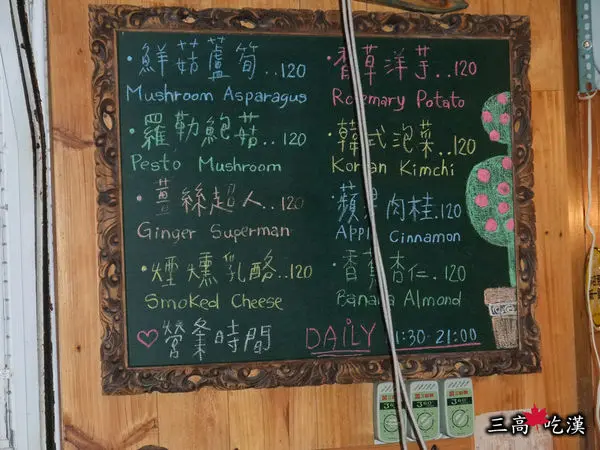 ·鮮菇蘆筍..120
Mushroom Asparagus
·羅勒鮑菇..120
Pesto Mushroom
·薑絲超人..120
Ginger Superman
·煙燻乳酪..120
Smoked Cheese
♡營業時間
·香草洋芋..120
Rosemary Potato
·韓式泡菜..120
Korean Kimchi
·蘋果肉桂.120
Apple Cinnamon
·香蕉杏仁.120
Banana Almond
DAILY 11:30-21:00
三高 吃漢